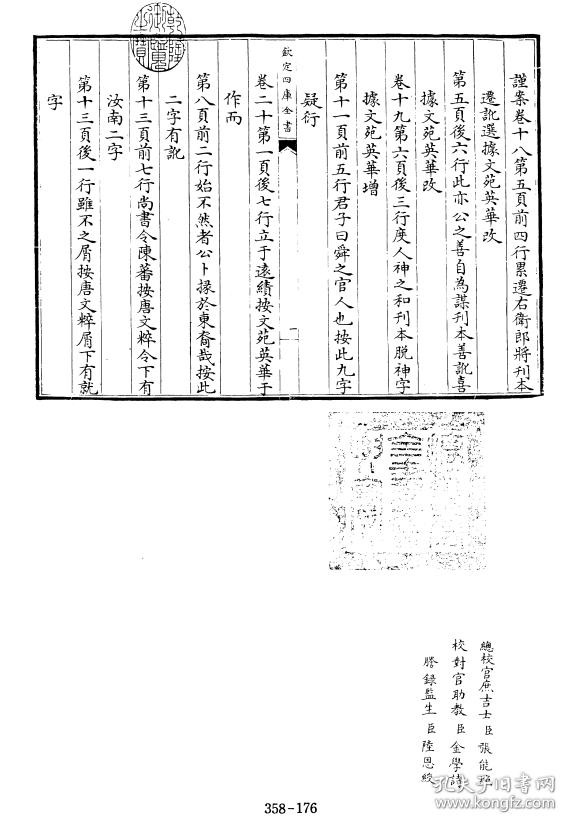 謹案卷十八第五頁前四行累遷右衛郎將刊本
遷訛選據文苑英華改
第五頁後六行此亦公之善自為謀刊本善訛喜
據文苑英華改
卷十九第六頁後三行庋人神之和刊本脫神字
據文苑英華增
第十一頁前五行君子曰舜之官人也按此九字
疑衍
欽定四庫全書
卷二十第一頁後七行立于遠績按文苑英華于
作而
第八頁前二行始不然者公卜掾於東裔哉按此
二字有訛
第十三頁前七行尚書令陳蕃按唐文粹令下有
汝南二字
第十三頁後一行雖不之屑按唐文粹屑下有就
字
乾隆御覽之寶
總校官庶吉士臣張能照
校對官助教臣金學詩
謄錄監生臣陸恩綬
358-176
孔夫子旧书网
www.kongfz.com